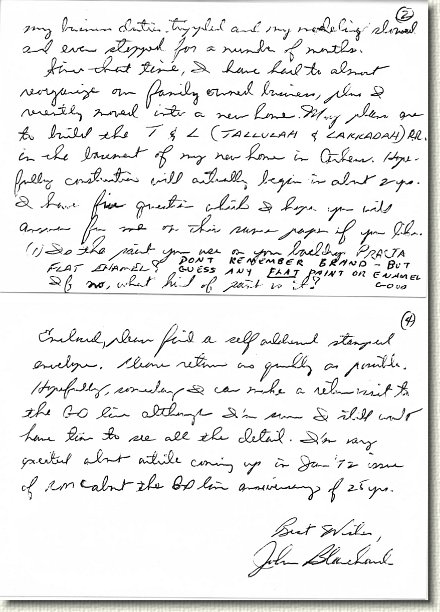 (2)
my business duties tripled and my modeling slowed
and even stopped for a number of months.
Since that time, I have had to almost
reorganize our family owned business, plus I
recently moved into a new home. My plans are
to build the T & L (TALLULAH & LAKKADAH) RR.
in the basement of my new home in Athens. Hope-
fully construction will actually begin in about 2 yrs.
I have five question which I hope you will
answer for me on this same paper if you like.
(1) Is the paint you use on your building PRACTA
FLAT ENAMEL? DONT REMEMBER BRAND - BUT
GUESS ANY FLAT PAINT OR ENAMEL
GOOD
If no, what kind of paint is it?
(4)
Enclosed, please find a self addressed stamped
envelope. Please return as quickly as possible.
Hopefully, someday I can make a return visit to
the GD line although I'm sure I still won't
have time to see all the detail. I'm very
excited about article coming up in Jan '72 issue
of RMC about the GD line anniversary of 25 yrs.
Best Wishes,
John Blanchard